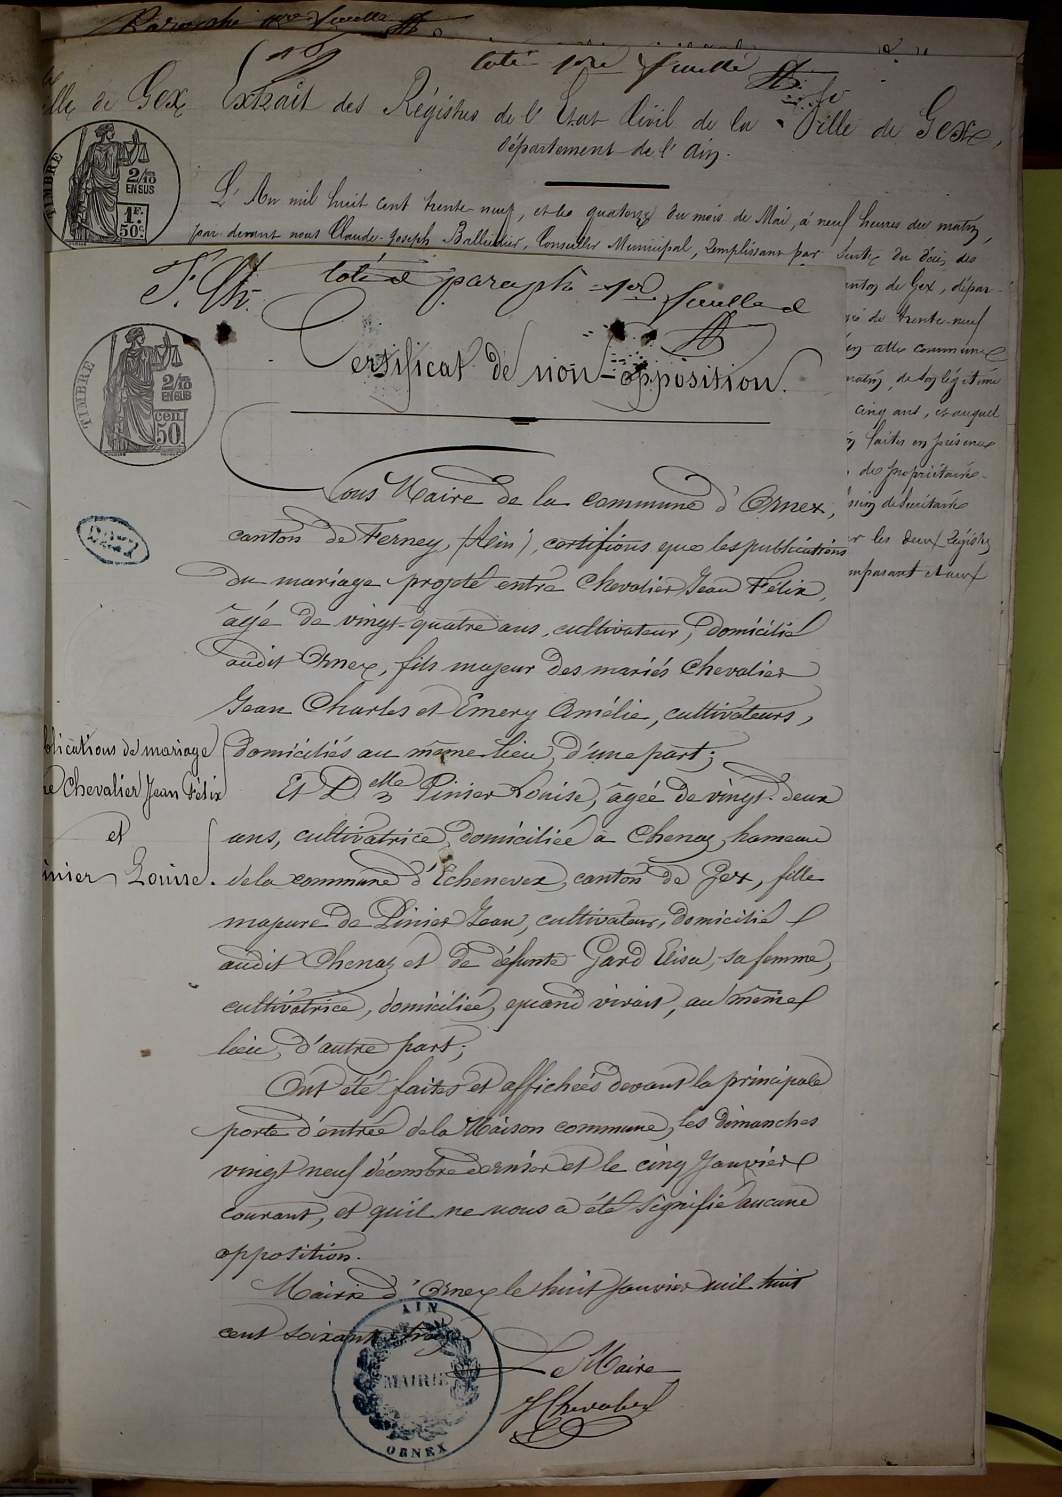 Paraphé 1ere feuille
Coté 1re feuille
lle de Gex
Extrait des Régistres de l'Etat Civil de la Ville de Gex,
département de l'Ain.
TIMBRE
2/10
EN SUS
1F.
50c.
L'An mil huit cent trente neuf, et le quatorze du mois de Mai, à neuf heures du matin,
par devant nous Claude-Joseph Balleidier, Conseiller Municipal, remplissant par
canton de Gex, dépar-
de trente-neuf
cette commune
matin, de son légitime
cinq ans, et auquel
faites en présence
de propriétaire
les deux Régistres
comparant et aux
Coté et paraphé 1re feuille
Certificat de non-opposition.
TIMBRE
2/10
EN SUS
cen.
50
Nous Maire de la commune d'Ornex,
canton de Ferney, (Ain), certifions que les publications
du mariage projeté entre Chevalier Jean Félix,
âgé de vingt-quatre ans, cultivateur, domicilié
audit Ornex, fils majeur des mariés Chevalier
Jean Charles et Emery Amélie, cultivateurs,
domiciliés au même lieu, d'une part;
blications de mariage
re Chevalier Jean Félix
et
inier Louise.
Et Delle Pinier Louise, âgée de vingt-deux
ans, cultivatrice, domiciliée à Chenaz, hameau
de la commune d'Echenevex, canton de Gex, fille
majeure de Pinier Jean, cultivateur, domicilié
audit Chenaz et de défunte Gard Elisa, sa femme,
cultivatrice, domiciliée, quand vivait, au même
lieu, d'autre part;
Ont été faites et affichées devant la principale
porte d'entrée de la Maison commune, les dimanches
vingt neuf décembre dernier et le cinq Janvier
courant, et qu'il ne nous a été signifié aucune
opposition.
Mairie d'Ornex le huit Janvier mil huit
cent soixante
Le Maire
J Chevalier
AIN
MAIRIE
ORNEX